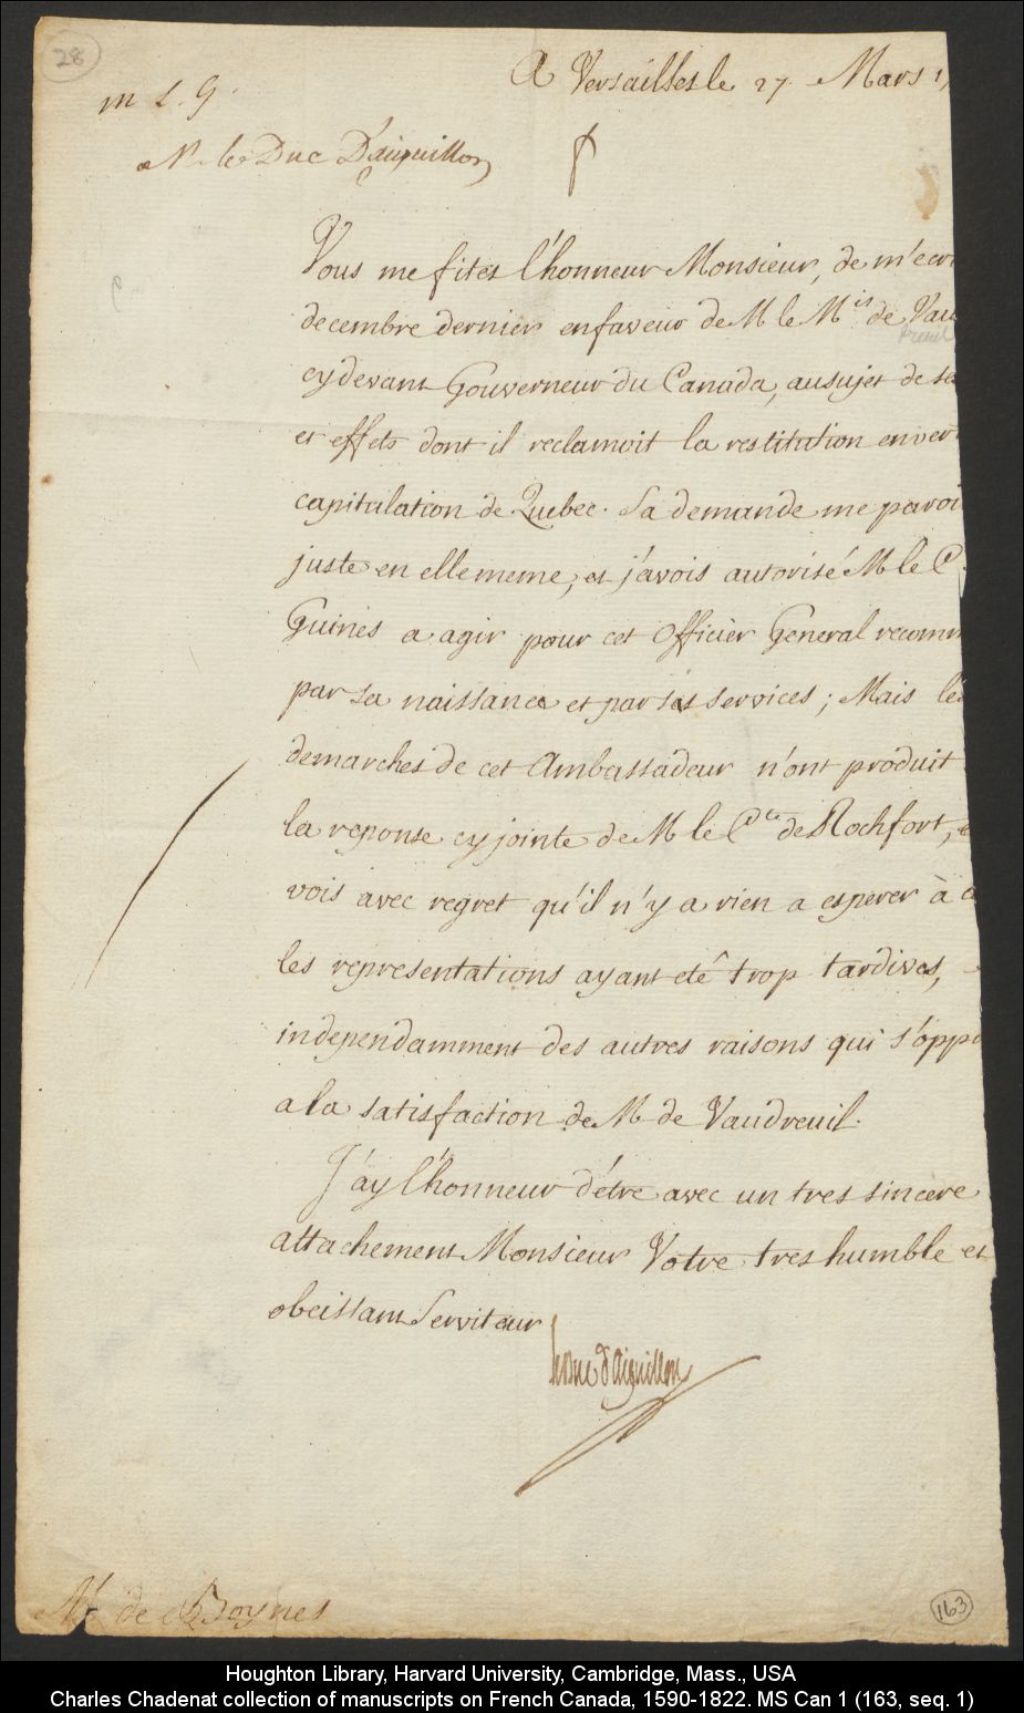 28
A Versailles le 27. Mars 1
m L. G.
M. le Duc D'aiguillon
Vous me fites l'honneur Monsieur, de m'ecri
decembre dernier en faveur de M le M.is de Vau
dreuil
cy devant Gouverneur du Canada, au sujet de se
et effets dont il reclamoit la restitution en ver
capitulation de Quebec. Sa demande me paroi
juste en elle meme, et j'avois autorisé M le C.
Guines a agir pour cet Officier General recomm
par sa naissance et par ses services; Mais les
demarches de cet Ambassadeur n'ont produit
la reponse cy jointe de M le C.te de Rochfort, e
vois avec regret qu'il n'y a rien a esperer à c
les representations ayant eté trop tardives,
independamment des autres raisons qui s'oppo
a la satisfaction de M de Vaudreuil.
J'ay l'honneur d'étre avec un tres sincere
attachement Monsieur Votre tres humble et
obeissant Serviteur
le duc d'aiguillon
M. de Boynes
163
Houghton Library, Harvard University, Cambridge, Mass., USA
Charles Chadenat collection of manuscripts on French Canada, 1590-1822. MS Can 1 (163, seq. 1)